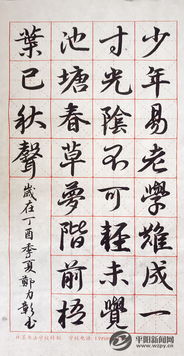 少年易老學難成一
寸光陰不可輕未覺
池塘春草夢階前梧
葉已秋聲
歲在丁酉季夏鄭力彰書
平阳新闻网